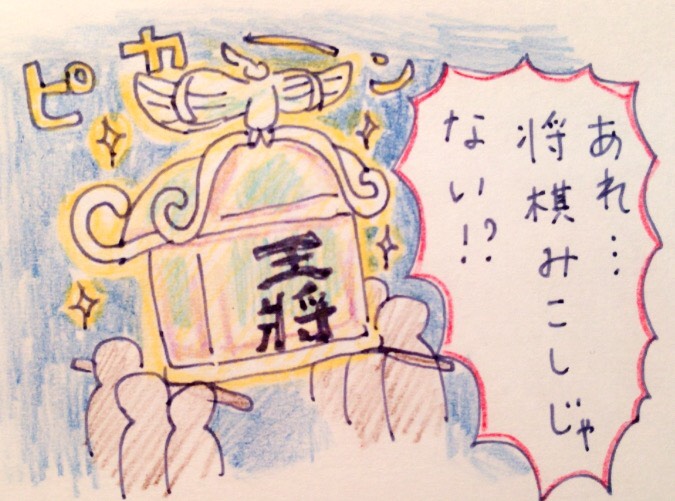 ピカーン
あれ…
将棋みこしじゃ
ない!?
王将